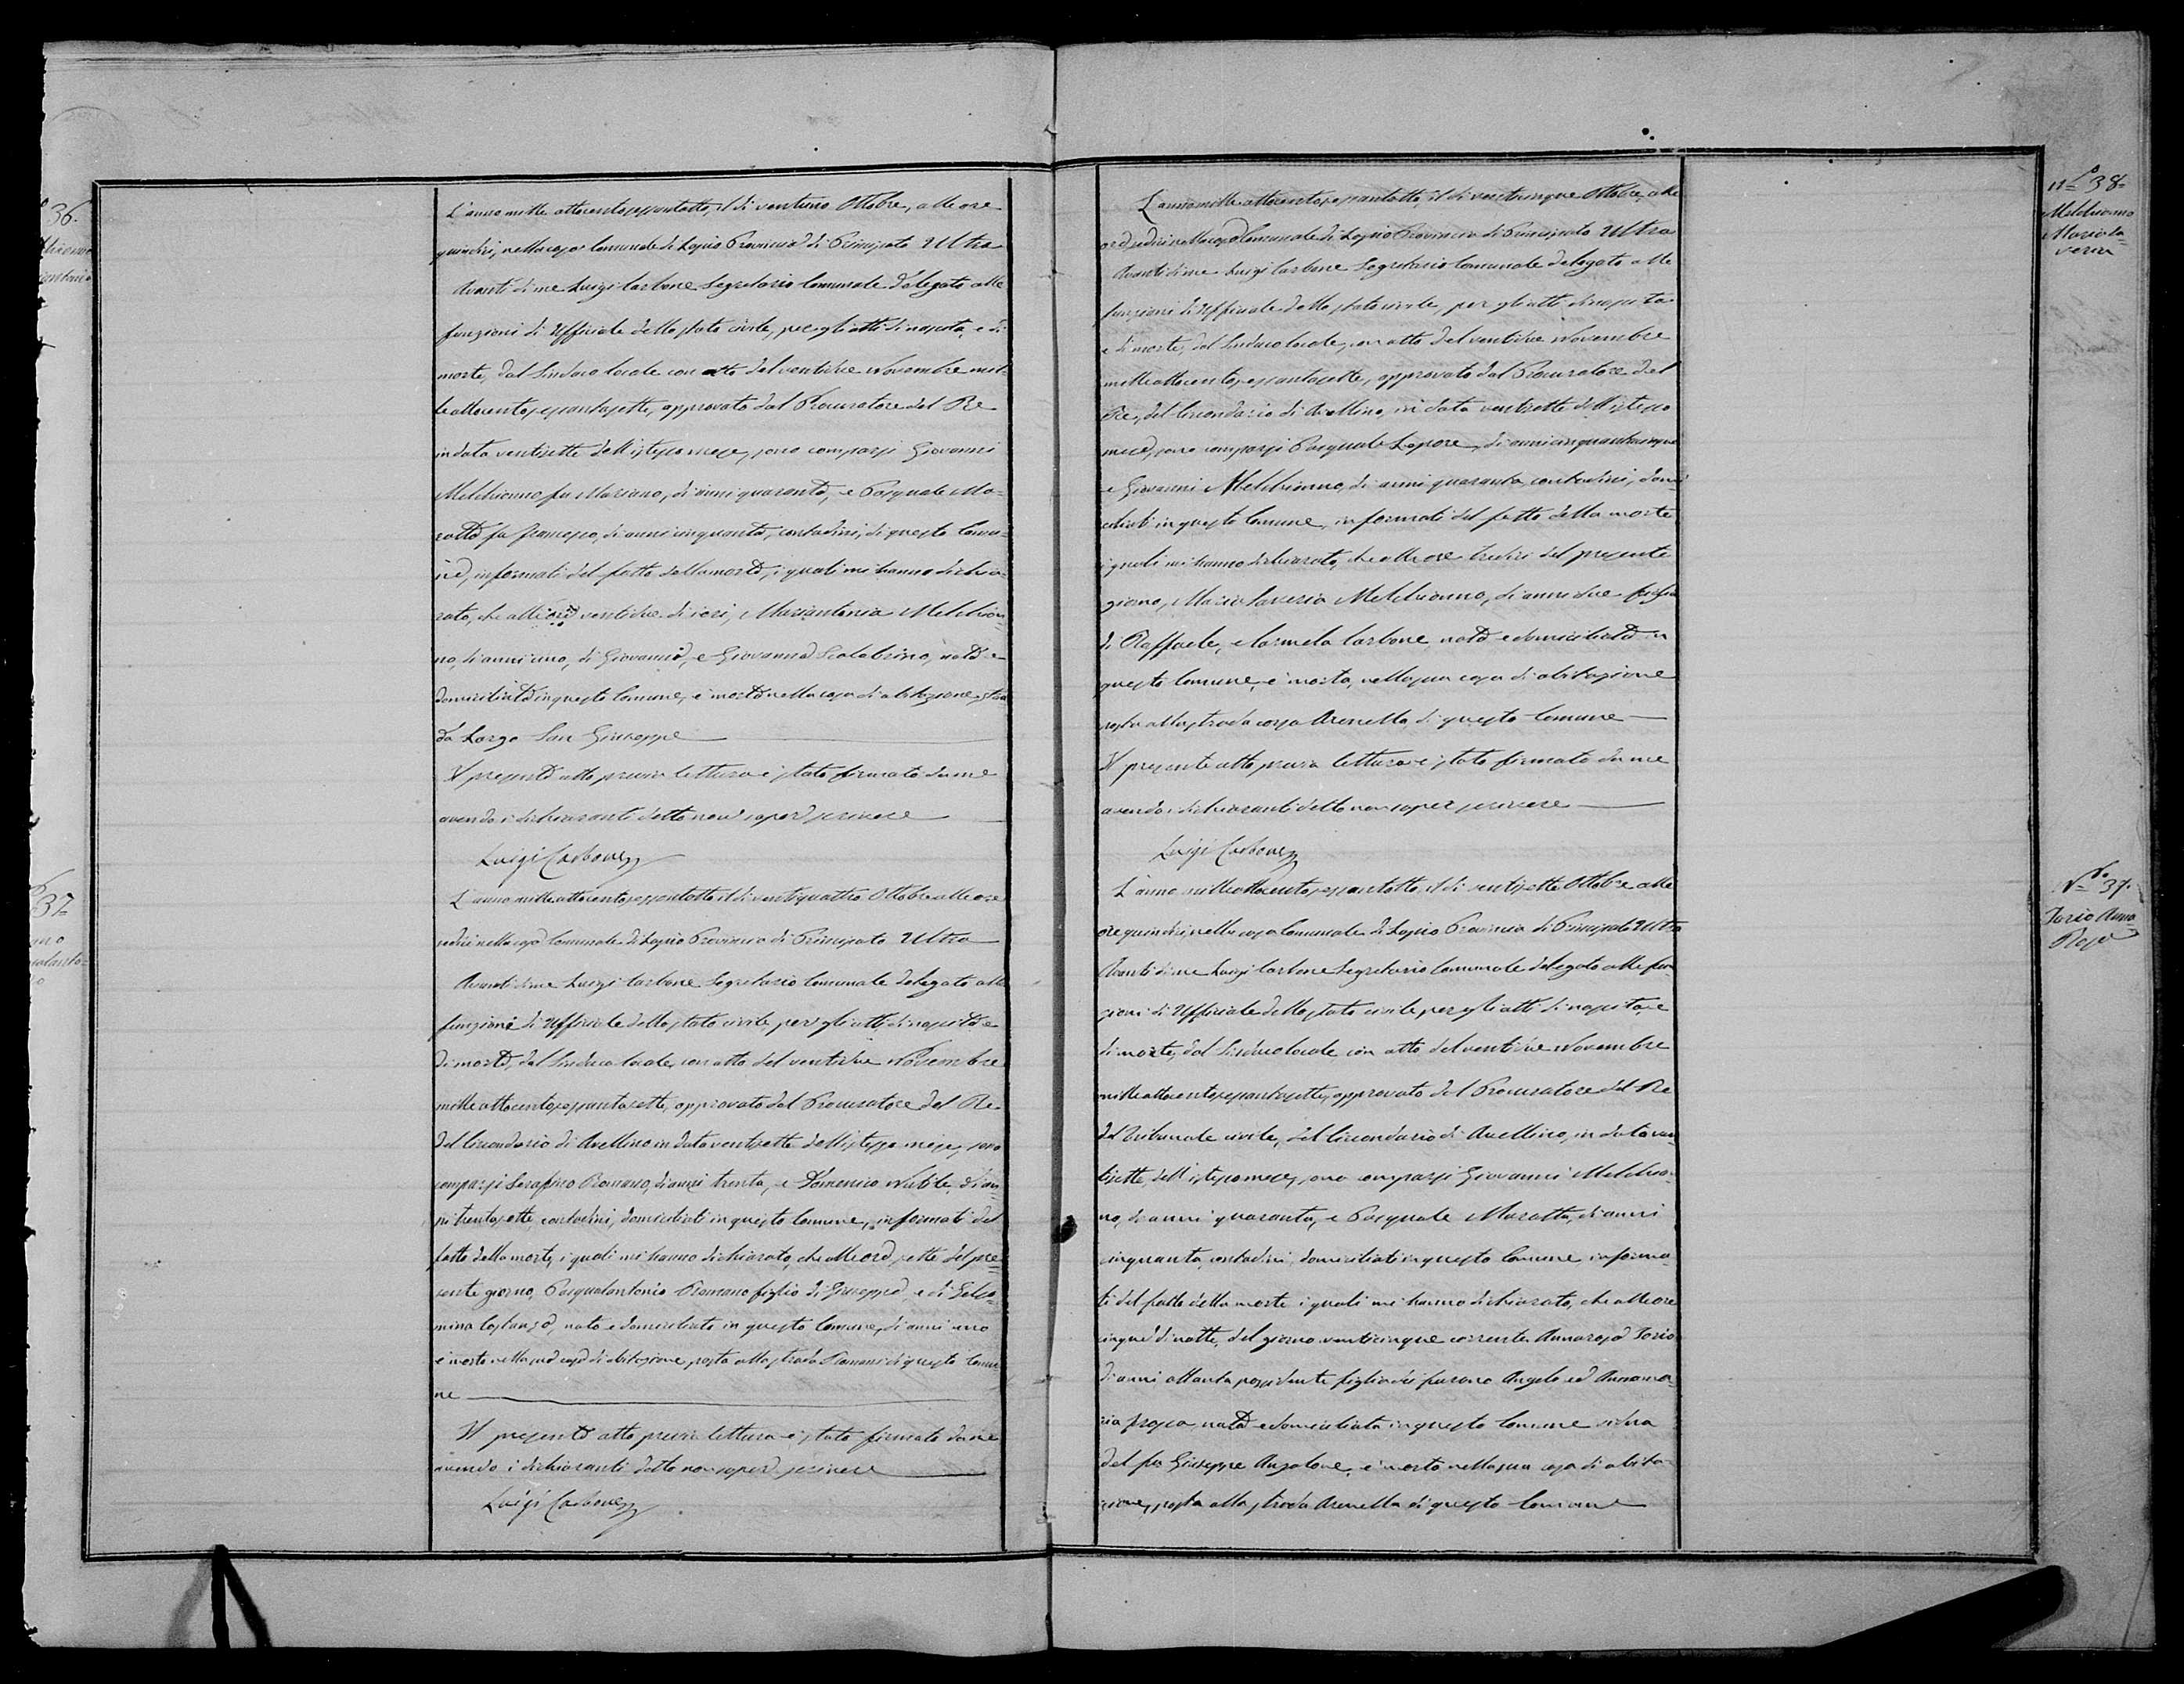 36.
L'anno mille ottocentosessantotto, il di ventuno Ottobre, alle ore
quindici, nella casa Comunale di Lapio Provincia di Principato Ultra
Avanti di me Luigi Carbone Segretario Comunale delegato alle
funzioni di Ufficiale dello stato civile, per gli atti di nascita, e di
morte, dal Sindaco locale con atto del ventidue Novembre mil-
le ottocentosessantasette, approvato dal Procuratore del Re
in data ventisette dell'istesso mese, sono comparsi Giovanni
Melchionno fu Mariano, di anni quaranta, e Pasquale Ma-
rotta fu Francesco, di anni cinquanta, contadini, di questo Comu-
ne, informati del fatto della morte, i quali mi hanno dichia-
rato, che alle ore ventidue di ieri, Mariantonia Melchion-
no, di anni uno, di Giovanni, e Giovanna Scalabrino, nata e
domiciliata in questo Comune, è morta nella casa di abitazione stra
da Largo San Giuseppe
Il presente atto previa lettura è stato firmato da me
avendo i dichiaranti detto non saper scrivere
Luigi Carbone
37
L'anno mille ottocentosessantotto il di ventiquattro Ottobre alle ore
sedici nella casa Comunale di Lapio Provincia di Principato Ultra
Avanti di me Luigi Carbone Segretario Comunale delegato alle
funzioni di Ufficiale dello stato civile, per gli atti di nascita e
di morte, dal Sindaco locale, con atto del ventidue Novembre
mille ottocentosessantasette, approvato dal Procuratore del Re
del Circondario di Avellino in data ventisette dell'istesso mese, sono
comparsi Serafino Romano, di anni trenta, e Domenico Nubile, di an-
ni trentasette contadini, domiciliati in questo Comune, informati del
fatto della morte, i quali mi hanno dichiarato, che alle ore sette del pre-
sente giorno, Pasqualantonio Romano figlio di Giuseppe, e di Gelso-
mina Costanzo, nato e domiciliato in questo Comune, di anni uno
è morto nella sua casa di abitazione posta alla strada Romani di questo Comu
ne
Il presente atto previa lettura è stato firmato da me
avendo i dichiaranti detto non saper scrivere
Luigi Carbone
N.º 38
Melchionno
Maria Sa-
veria
L'anno mille ottocentosessantotto, il di venticinque Ottobre, alle
ore sedici nella casa Comunale di Lapio Provincia di Principato Ultra
Avanti di me Luigi Carbone Segretario Comunale delegato alle
funzioni di Ufficiale dello stato civile, per gli atti di nascita
e di morte, dal Sindaco locale, con atto del ventidue Novembre
mille ottocentosessantasette, approvato dal Procuratore del
Re, del Circondario di Avellino, in data ventisette dell'istesso
mese, sono comparsi Pasquale Lepore, di anni cinquantacinque
e Giovanni Melchionno, di anni quaranta, contadini, domi
ciliati in questo Comune, informati del fatto della morte
i quali mi hanno dichiarato, che alle ore tredici del presente
giorno, Maria Saveria Melchionno, di anni due figlia
di Raffaele, e Carmela Carbone, nata e domiciliata in
questo Comune, è morta, nella sua casa di abitazione
posta alla strada Arenella di questo Comune
Il presente atto previa lettura è stato firmato da me
avendo i dichiaranti detto non saper scrivere
Luigi Carbone
N.º 37.
Iorio Anna
Rosa
L'anno mille ottocentosessantotto, il di ventisette Ottobre alle
ore quindici, nella casa Comunale di Lapio Provincia di Principato Ultra
Avanti di me Luigi Carbone Segretario Comunale delegato alle fun
zioni di Ufficiale dello stato civile per gli atti di nascita, e
di morte, dal Sindaco locale con atto del ventidue Novembre
mille ottocentosessantasette, approvato dal Procuratore del Re
del Tribunale civile, del Circondario di Avellino, in data ven
tisette, dell'istesso mese, sono comparsi Giovanni Melchion-
no, di anni quaranta, e Pasquale Marotta, di anni
cinquanta, contadini, domiciliati in questo Comune informa-
ti del fatto della morte i quali mi hanno dichiarato, che alle ore
cinque di notte, del giorno venticinque corrente Annarosa Iorio
di anni ottanta possidente figlia dei furono Angelo ed Annama-
ria nata e domiciliata in questo Comune vedova
del fu Giuseppe Anzalone, è morta nella sua casa di abita-
zione, posta alla strada Arenella di questo Comune